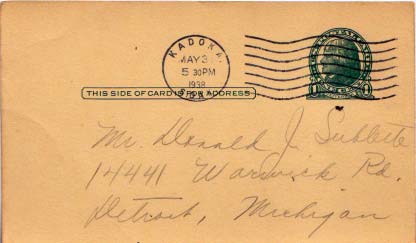 KADOKA
MAY 31
5 30PM
1938
S.DAK.
THIS SIDE OF CARD IS FOR ADDRESS
Mr. Donald J. Sublette
14441 Warwick Rd.
Detroit, Michigan